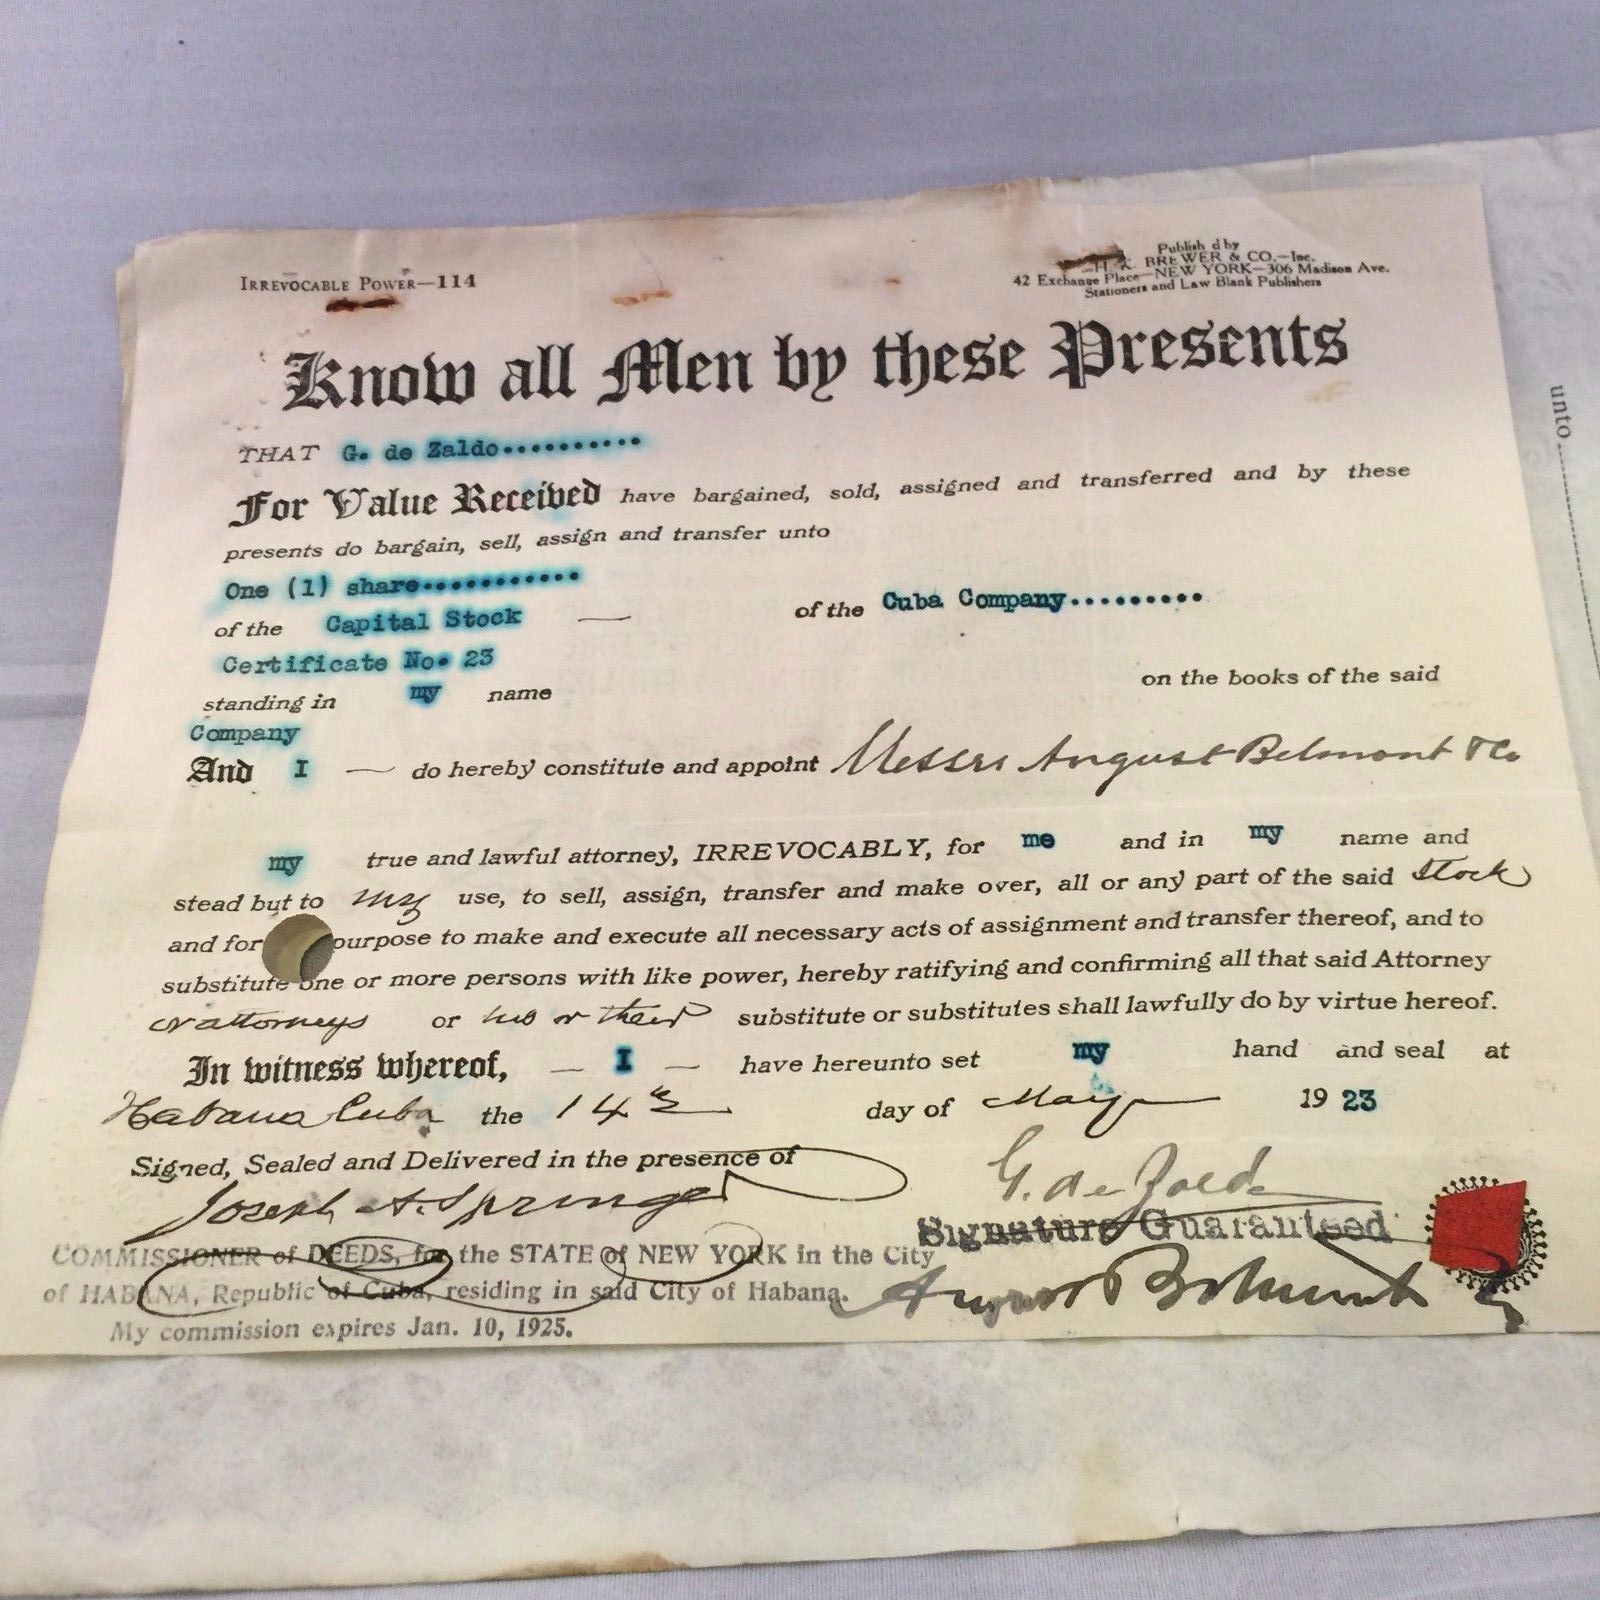 IRREVOCABLE POWER—114
Publish d by
H. K. BREWER & CO.—Inc.
42 Exchange Place—NEW YORK—306 Madison Ave.
Stationers and Law Blank Publishers
Know all Men by these Presents
THAT G. de Zaldo..........
For Value Received have bargained, sold, assigned and transferred and by these
presents do bargain, sell, assign and transfer unto
One (1) share...........
of the Capital Stock — of the Cuba Company.........
Certificate No. 23
standing in my name on the books of the said
Company
And I — do hereby constitute and appoint Messrs August Belmont & Co
my true and lawful attorney, IRREVOCABLY, for me and in my name and
stead but to my use, to sell, assign, transfer and make over, all or any part of the said Stock
and for purpose to make and execute all necessary acts of assignment and transfer thereof, and to
substitute one or more persons with like power, hereby ratifying and confirming all that said Attorney
or attorneys or his or their substitute or substitutes shall lawfully do by virtue hereof.
In witness whereof, — I — have hereunto set my hand and seal at
Habana Cuba the 14th day of May 1923
Signed, Sealed and Delivered in the presence of
Joseph A. Springer
G. de Zaldo
Signature Guaranteed
August Belmont
COMMISSIONER of DEEDS, for the STATE of NEW YORK in the City
of HABANA, Republic of Cuba, residing in said City of Habana.
My commission expires Jan. 10, 1925.
unto